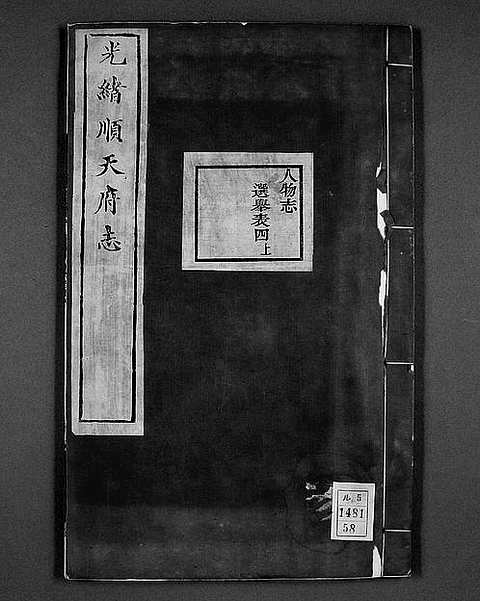 光緒順天府志
人物志
選舉表四上
ル 5
1481
58